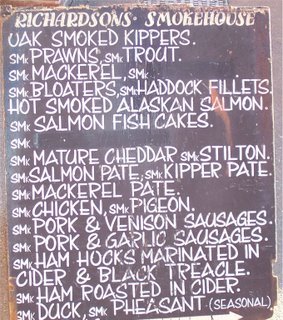 RICHARDSONS· SMOKEHOUSE
OAK SMOKED KIPPERS.
SMK PRAWNS, SMK TROUT.
SMK MACKEREL, SMK
SMK BLOATERS, SMK HADDOCK FILLETS.
HOT SMOKED ALASKAN SALMON.
SMK SALMON FISH CAKES.
SMK
SMK MATURE CHEDDAR SMK STILTON.
SMK SALMON PATE, SMK KIPPER PATE.
SMK MACKEREL PATE.
SMK CHICKEN, SMK PIGEON.
SMK PORK & VENISON SAUSAGES.
SMK PORK & GARLIC SAUSAGES.
SMK HAM HOCKS MARINATED IN
CIDER & BLACK TREACLE.
SMK HAM ROASTED IN CIDER.
SMK DUCK, SMK PHEASANT (SEASONAL)